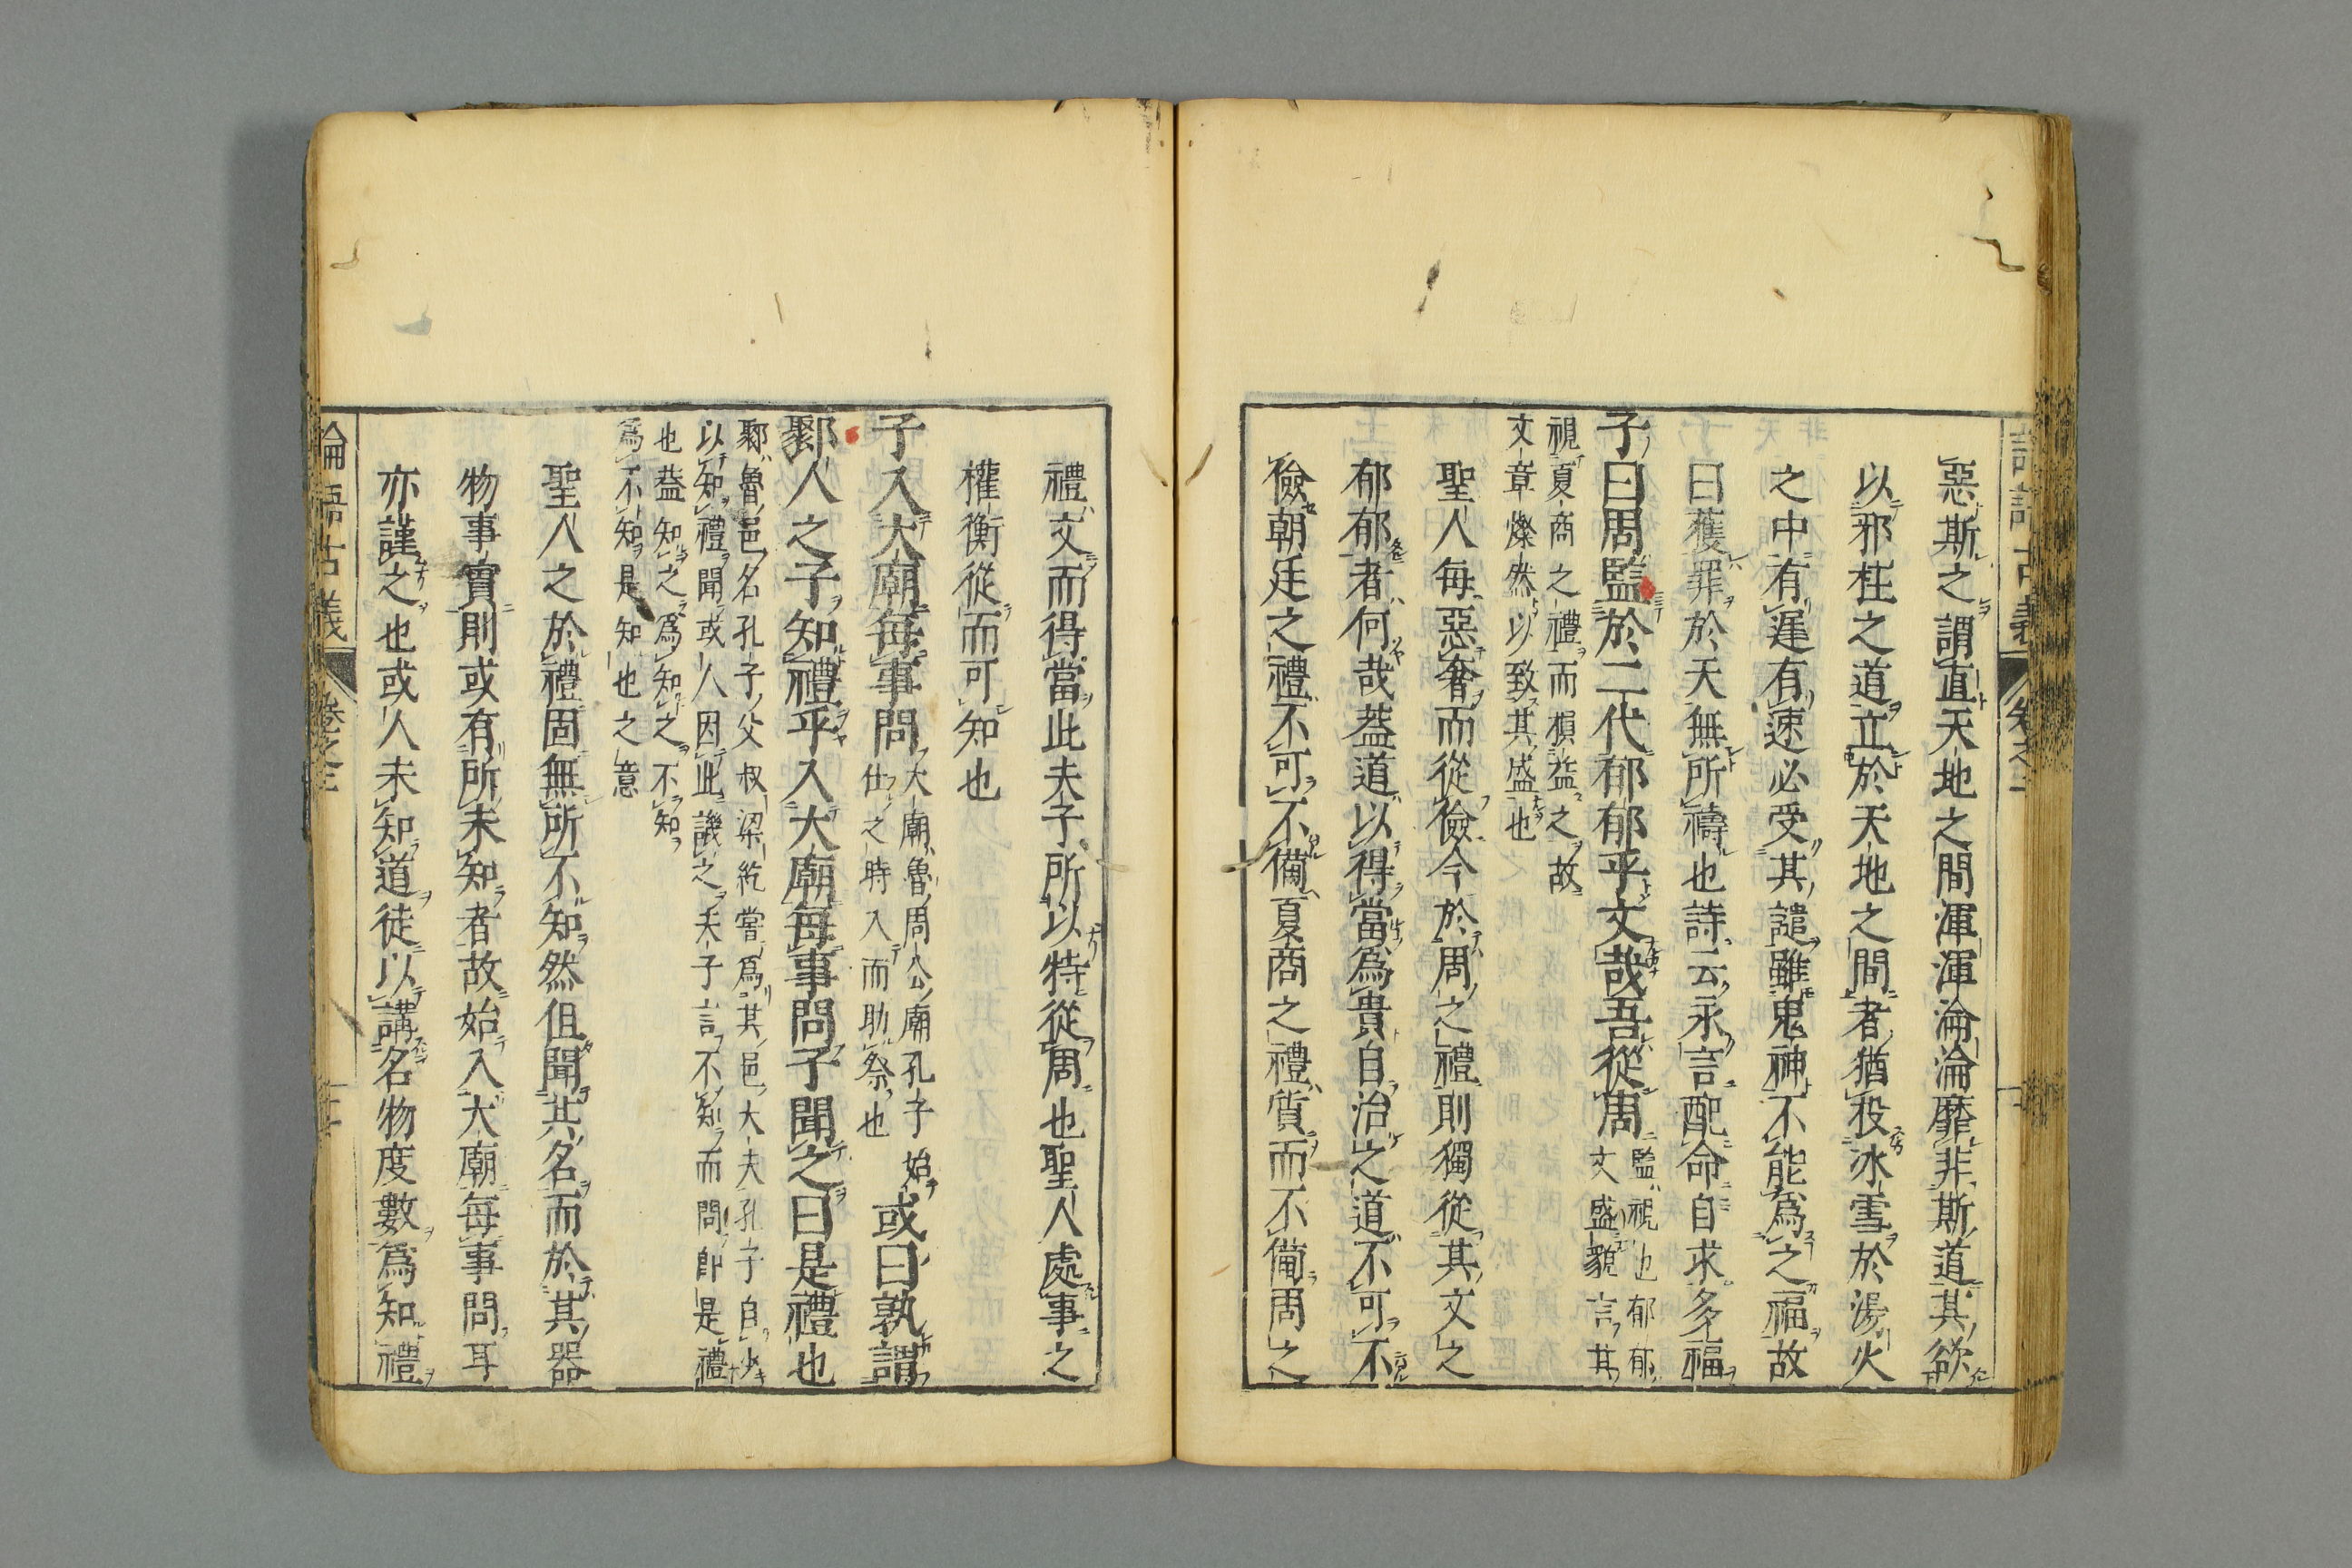 惡斯之謂直天地之間渾渾淪淪靡非斯道其欲
以邪枉之道立於天地之間者猶投冰雪於湯火
之中有遲有速必受其譴雖鬼神不能爲之福故
曰獲罪於天無所禱也詩云永言配命自求多福
子曰周監於二代郁郁乎文哉吾從周
監視也郁郁
文盛貌言其
視夏商之禮而損益之故
文章燦然以致其盛也
聖人每惡奢而從儉今於周之禮則獨從其文之
郁郁者何哉葢道以得當爲貴自治之道不可不
儉朝廷之禮不可不備夏商之禮質而不備周之
禮文而得當此夫子所以特從周也聖人處事之
權衡從而可知也
子入大廟每事問
大廟魯周公廟孔子始
仕之時入而助祭也
或曰孰謂
鄹人之子知禮乎入大廟每事問子聞之曰是禮也
鄹魯邑名孔子父叔梁紇嘗爲其邑大夫孔子自少
以知禮聞或人因此譏之夫子言不知而問卽是禮
也葢知之爲知之不知
爲不知是知也之意
聖人之於禮固無所不知然但聞其名而於其器
物事實則或有所未知者故始入大廟每事問耳
亦謹之也或人未知道徒以講名物度數爲知禮
論語古義
卷之二